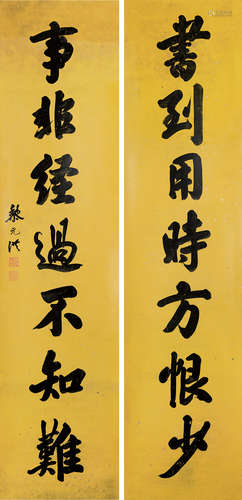 書到用時方恨少
事非經過不知難
黎元洪